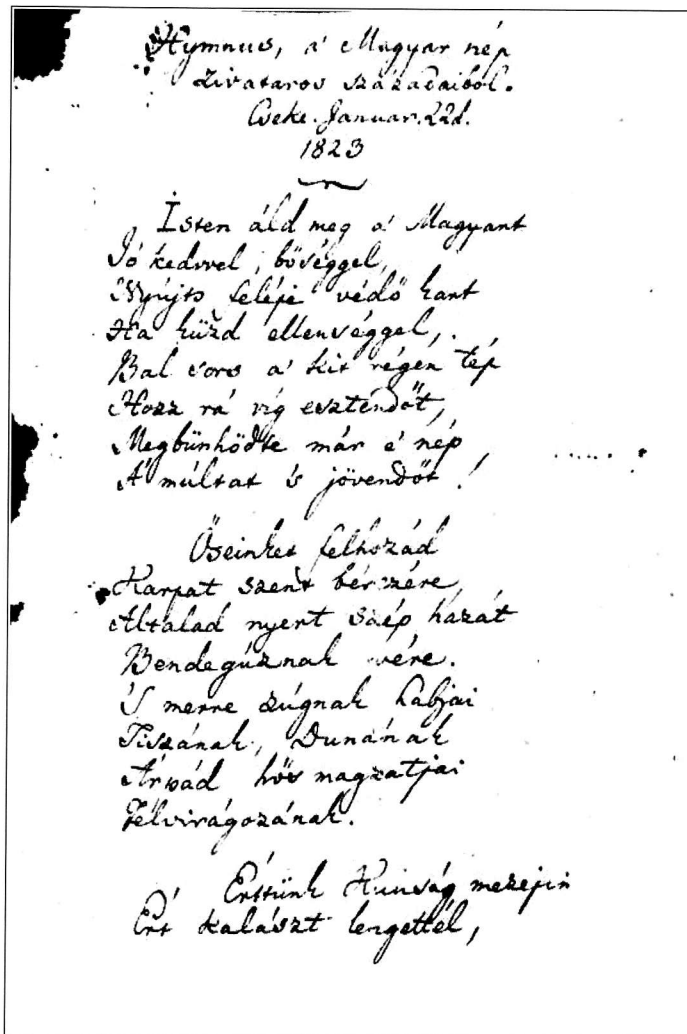 Hymnus, a' Magyar nép
zivataros századaiból.
Cseke. Januar. 22d.
1823
Isten áld meg a' Magyart
Jó kedvvel, bőséggel,
Nyújts feléje védő kart
Ha küzd ellenséggel,
Bal sors a' kit régen tép
Hozz rá víg esztendőt,
Megbűnhödte már e' nép
A' múltat 's jövendőt!
Őseinket felhozád
Kárpát szent bérczére
Általad nyert szép hazát
Bendegúznak vére.
'S merre zúgnak habjai
Tiszának, Dunának
Árpád hős magzatjai
Felvirágozának.
Értünk Kunság mezejin
Ért kalászt lengettél,